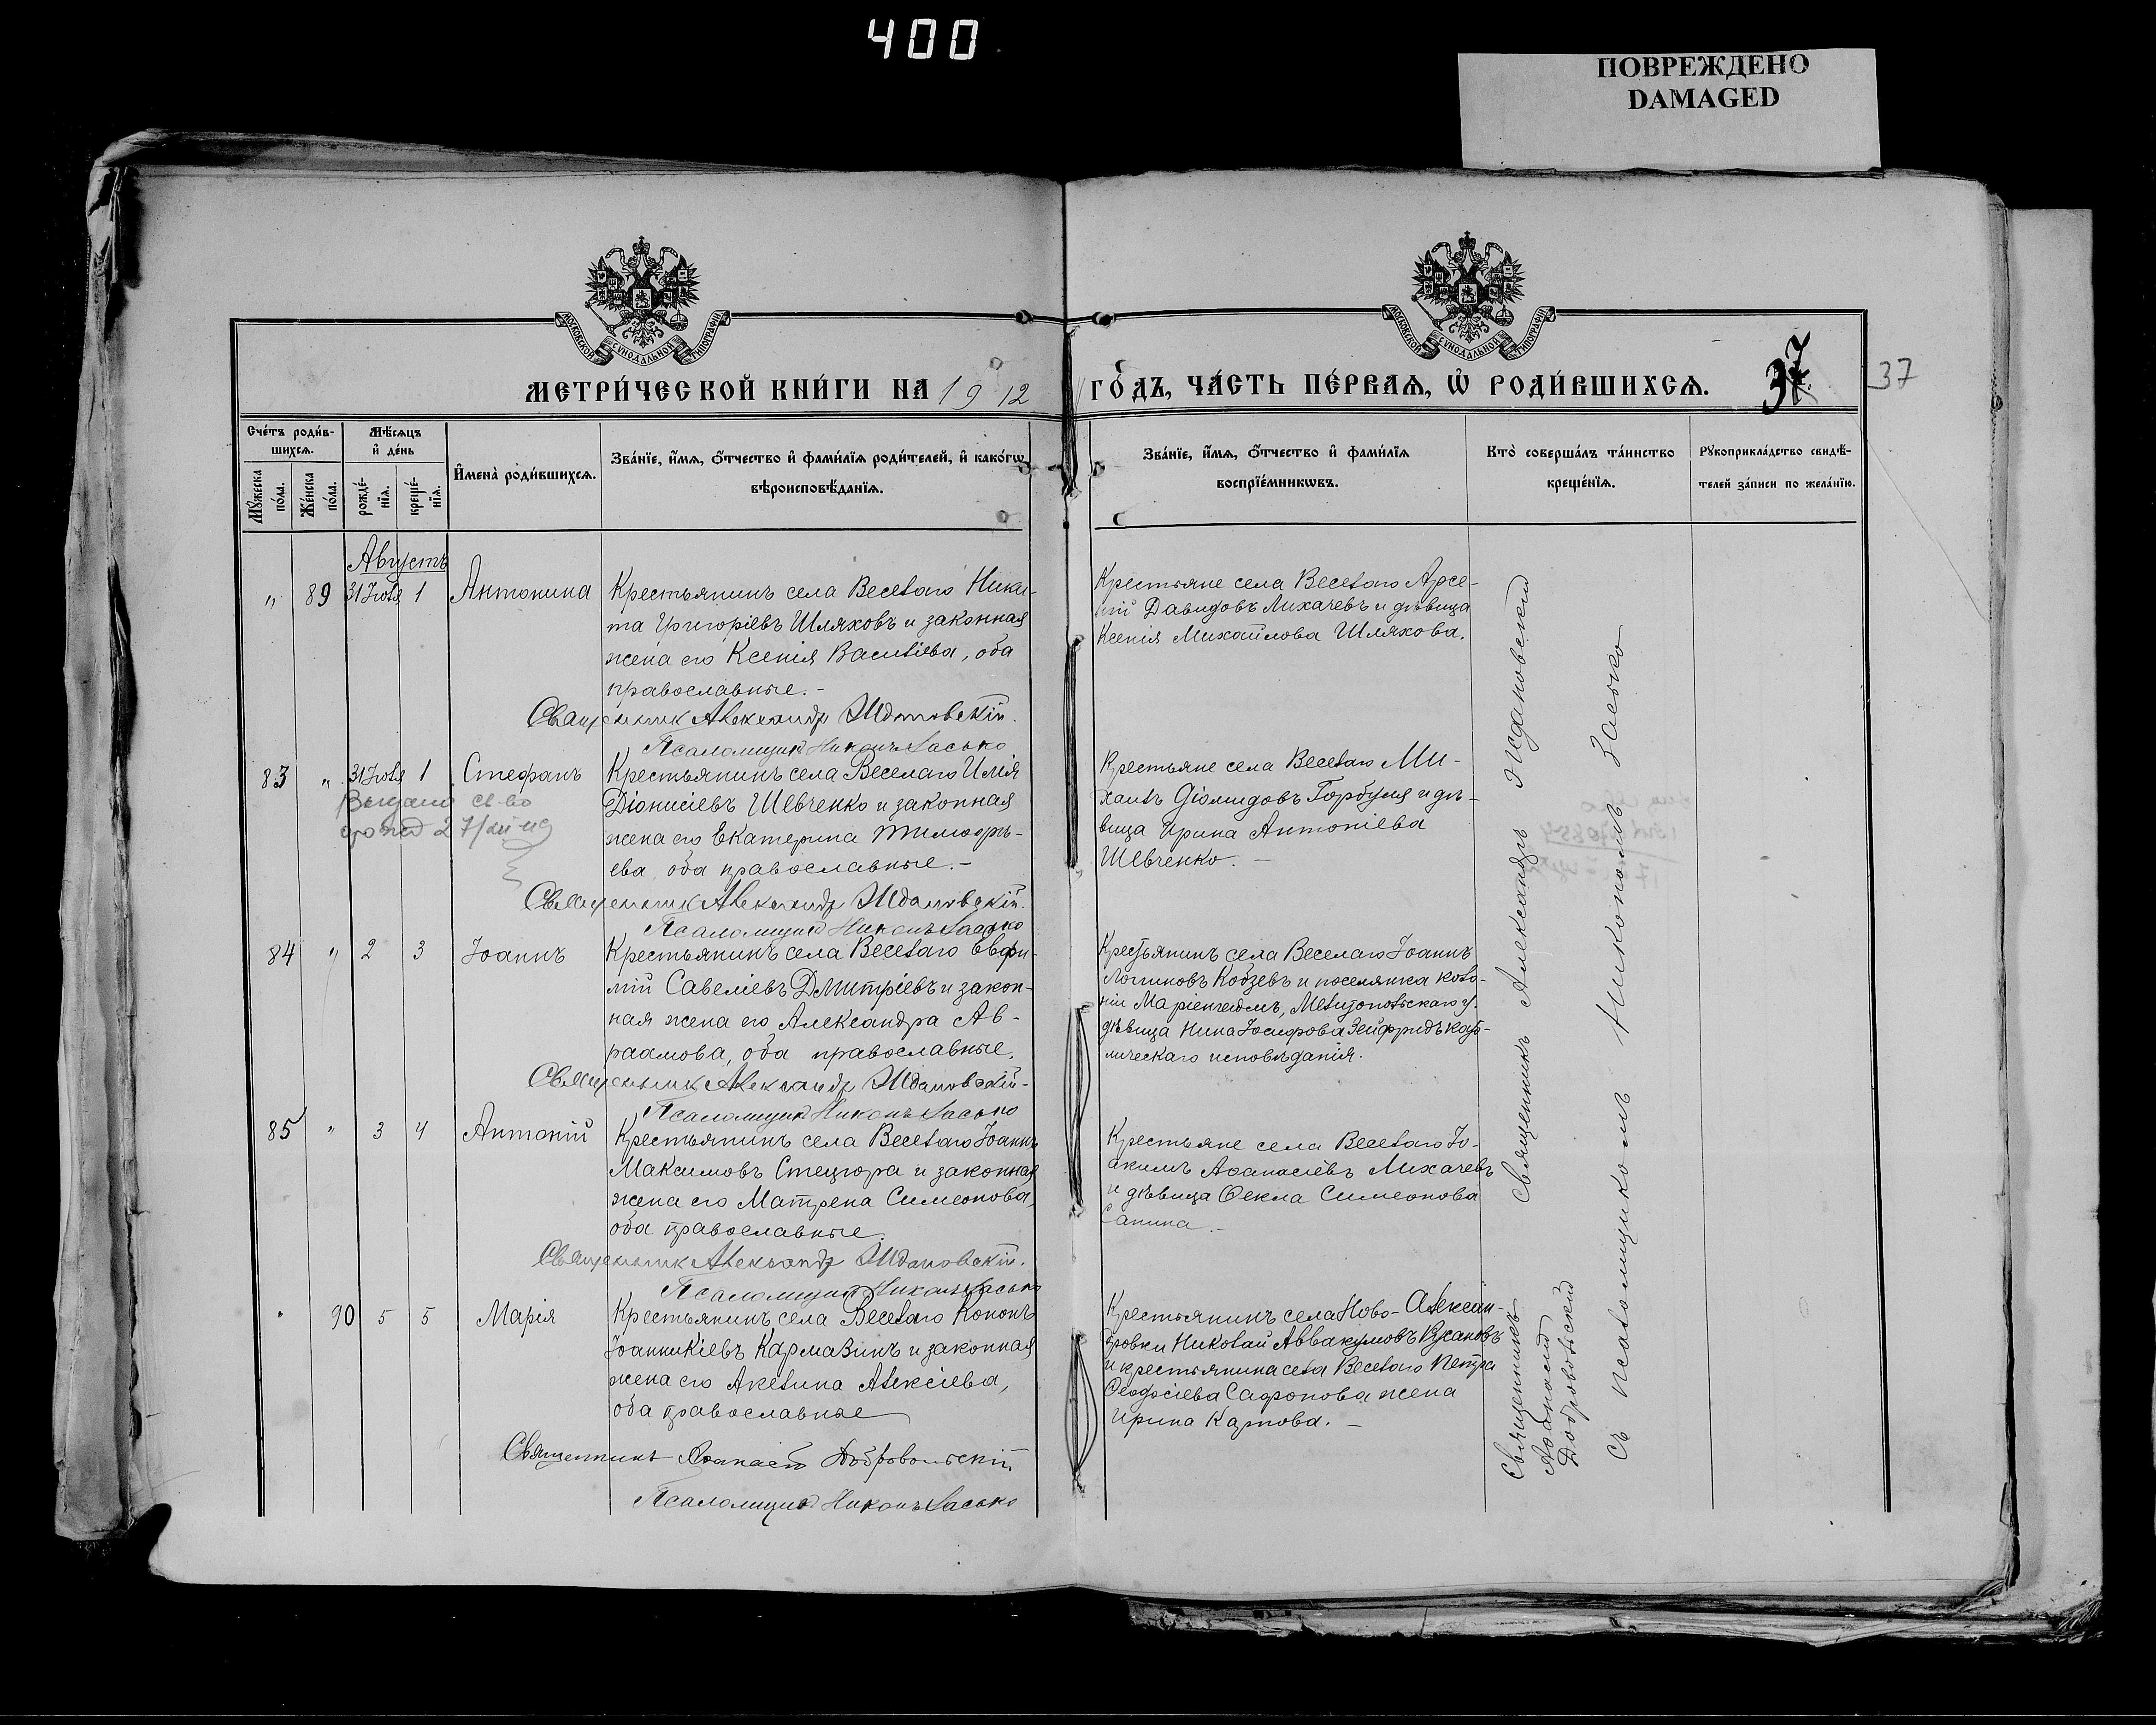 400
ПОВРЕЖДЕНО
DAMAGED
МОСКОВСКОЙ СУНОДАЛЬНОЙ ТИПОГРАФІИ
МОСКОВСКОЙ СУНОДАЛЬНОЙ ТИПОГРАФІИ
МЕТРИ́ЧЕСКОЙ КНИ́ГИ НА 1912
ГО́ДЪ, ЧА́СТЬ ПЕ́РВАѦ, Ѡ҆ РОДИ́ВШИХСѦ.
37
37
Сче́тъ роди́в-
шихсѧ.
Мꙋ́жеска
по́ла.
Же́нска
по́ла.
Мѣ́сѧцъ
и҆ де́нь
рожде́-
нїѧ.
креще́-
нїѧ.
И҆мена̀ роди́вшихсѧ.
Зва́нїе, и҆́мѧ, ѻ҆́тчество и҆ фами́лїѧ роди́телей, и҆ како́гѡ
вѣроисповѣ́данїѧ.
Зва́нїе, и҆́мѧ, ѻ҆́тчество и҆ фами́лїѧ
воспрїе́мникѡвъ.
Кто̀ соверша́лъ та́инство
креще́нїѧ.
Рꙋкоприкла́дство свидѣ́-
телей за́писи по жела́нїю.
Августъ
" 89 31 Іюля 1 Антонина
Крестьянинъ села Веселаго Ники-
та Григоріевъ Шляховъ и законная
жена его Ксенія Василіева, оба
православные.-
Священник Александр Ждановскій.
Псаломщик Никонъ Засько
Крестьяне села Веселаго Арсе-
ній Давидовъ Лихачевъ и дѣвица
Ксенія Михаилова Шляхова.
83 " 31 Іюля 1 Стефанъ
Выдано св-во
Крестьянинъ села Веселаго Илія
Діонисіевъ Шевченко и законная
жена его Екатерина Тимофѣ-
ева, оба православные.-
Священник Александр Ждановскій.
Псаломщик Никонъ Засько
Крестьяне села Веселаго Ми-
хаилъ Діомидовъ Горбуля и дѣ-
вица Ирина Антоніева
Шевченко. -
84 " 2 3 Іоаннъ
Крестьянинъ села Веселаго Евфи-
мій Савеліевъ Дмитріевъ и закон-
ная жена его Александра Ав-
раамова, оба православные.
Священник Александр Ждановскій-
Псаломщик Никонъ Засько
Крестьянинъ села Веселаго Іоаннъ
Логиновъ Кобзевъ и поселянка коло-
ніи Маріенгеймъ, Мелитопольскаго у.
дѣвица Нина Іосифова Зейфридъ като-
лическаго исповѣданія.
85 " 3 4 Антоній
Крестьянинъ села Веселаго Іоаннъ
Максимовъ Стецюра и законная
жена его Матрена Симеонова,
оба православные.
Священник Александр Ждановскій.
Псаломщик Никонъ Засько
Крестьяне села Веселаго Іо-
акимъ Аѳанасіевъ Лихачевъ
и дѣвица Ѳекла Симеонова
Санина.-
" 90 5 5 Марія
Крестьянинъ села Веселаго Кононъ
Іоанникіевъ Кармазинъ и законная
жена его Акелина Алексіева,
оба православные
Священникъ Аѳанасій Добровольскій
Псаломщик Никонъ Засько
Крестьянинъ села Ново-Алексан-
дровки Николай Аввакумовъ
и крестьянина села Веселаго Петра
Ѳеодосіева Сафонова жена
Ирина Карпова. -
Священникъ Александръ Ждановскій
Священникъ
Аѳанасій
Добровольскій
съ псаломщикомъ Никономъ Засько